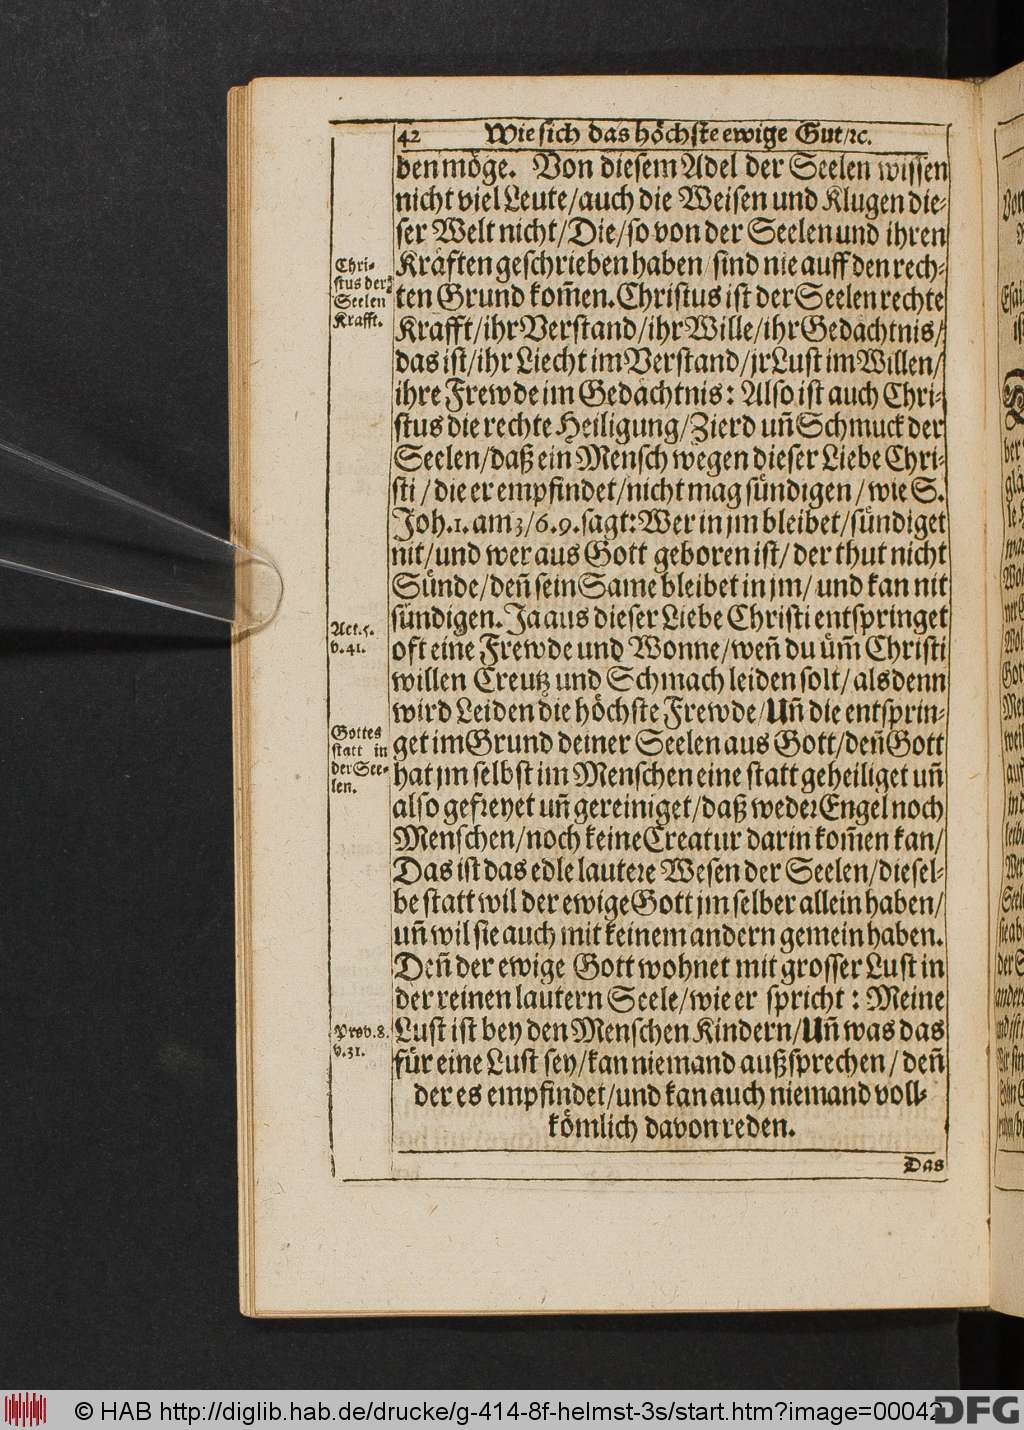 42 Wie sich das höchste ewige Gut/ꝛc.
ben möge. Von diesem Adel der Seelen wissen
nicht viel Leute/auch die Weisen und Klugen die⸗
ser Welt nicht/Die/so von der Seelen und ihren
Kräften geschrieben haben/sind nie auff den rech⸗
ten Grund kom̃en. Christus ist der Seelen rechte
Krafft/ihr Verstand/ihr Wille/ihr Gedächtnis/
das ist/ihr Liecht im Verstand/jr Lust im Willen/
ihre Frewde im Gedächtnis: Also ist auch Chri⸗
stus die rechte Heiligung/Zierd uñ Schmuck der
Seelen/daß ein Mensch wegen dieser Liebe Chri⸗
sti/die er empfindet/nicht mag sündigen/wie S.
Joh. 1. am 3/6. 9. sagt: Wer in jm bleibet/sündiget
nit/und wer aus Gott geboren ist/der thut nicht
Sünde/deñ sein Same bleibet in jm/und kan nit
sündigen. Ja aus dieser Liebe Christi entspringet
oft eine Frewde und Wonne/weñ du üm̃ Christi
willen Creutz und Schmach leiden solt/alsdenn
wird Leiden die höchste Frewde/Uñ die entsprin⸗
get im Grund deiner Seelen aus Gott/deñ Gott
hat jm selbst im Menschen eine statt geheiliget uñ
also gefreyet uñ gereiniget/daß weder Engel noch
Menschen/noch keine Creatur darin kom̃en kan/
Das ist das edle lautere Wesen der Seelen/diesel⸗
be statt wil der ewige Gott jm selber allein haben/
uñ wil sie auch mit keinem andern gemein haben.
Deñ der ewige Gott wohnet mit grosser Lust in
der reinen lautern Seele/wie er spricht: Meine
Lust ist bey den Menschen Kindern/Uñ was das
für eine Lust sey/kan niemand außsprechen/deñ
der es empfindet/und kan auch niemand voll⸗
kömlich davon reden.
Das
Chri⸗
stus der
Seelen
Krafft.
Act. 5.
v. 41.
Gottes
statt in
der See⸗
len.
Prov. 8.
v. 31.
© HAB http://diglib.hab.de/drucke/g-414-8f-helmst-3s/start.htm?image=00042
DFG